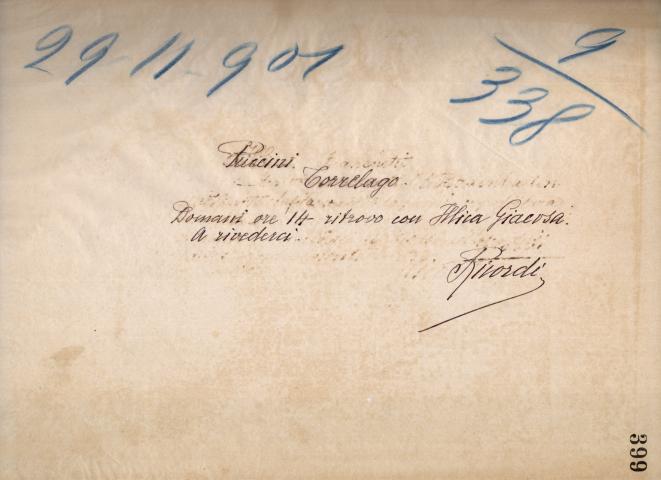 29-11-901
9/338
Puccini
Torrelago
Domani ore 14 ritrovo con Illica Giacosa.
A rivederci.
Ricordi
399